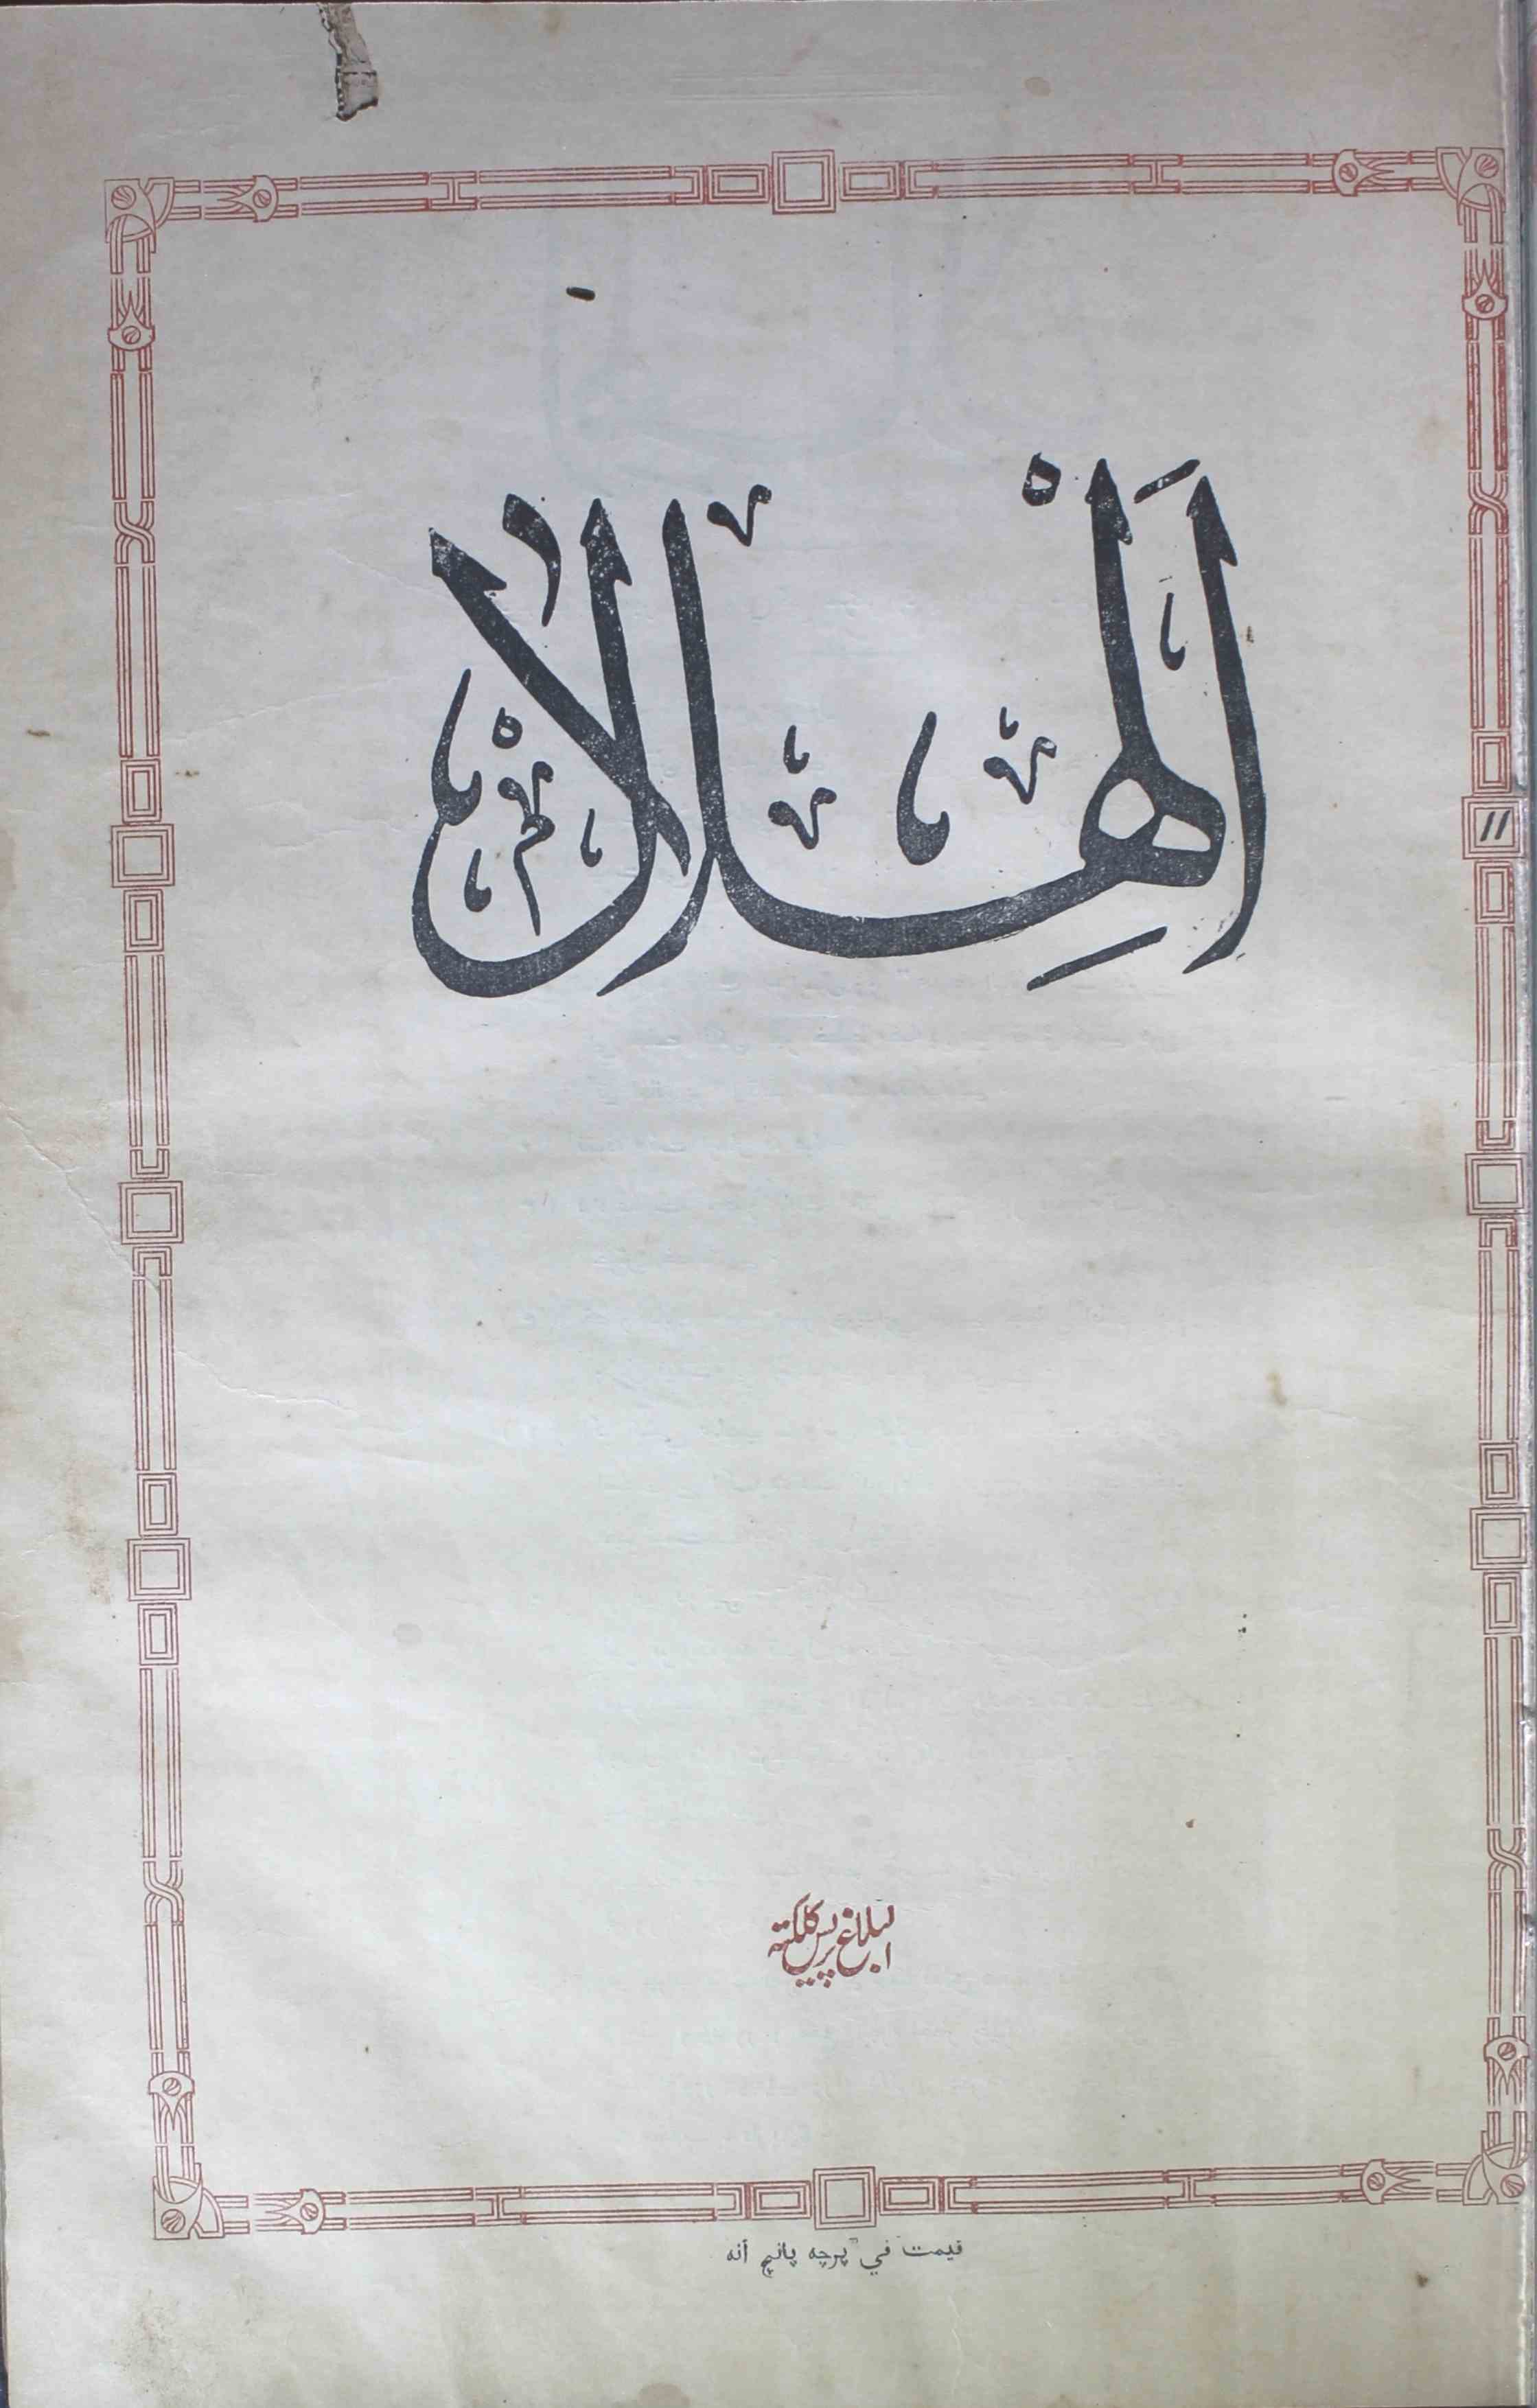 الهلال
11
البلاغ پریس کلکتہ
قیمت في پرچہ پانچ آنہ